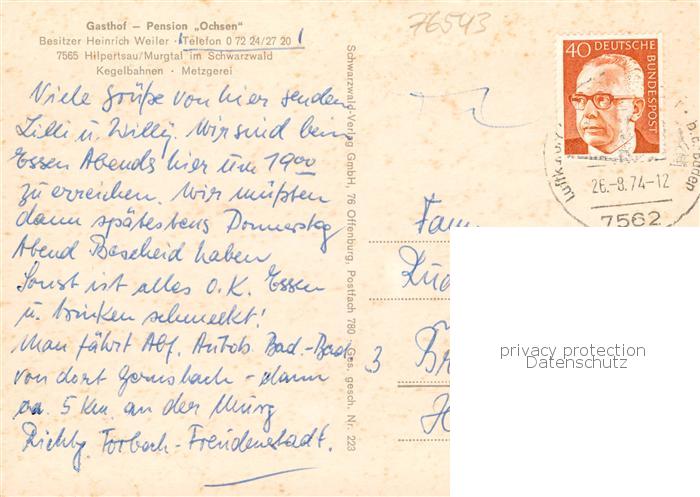 Gasthof – Pension „Ochsen"
Besitzer Heinrich Weiler · Telefon 0 72 24/27 20
7565 Hilpertsau/Murgtal im Schwarzwald
Kegelbahnen · Metzgerei
Viele Grüße von hier senden
Lilli u. Willy. Wir sind beim
Essen Abends hier um 19⁰⁰
zu erreichen. Wir müßten
dann spätestens Donnerstag
Abend Bescheid haben
Sonst ist alles O.K. Essen
u. trinken schmeckt!
Man fährt Abf. Autob. Bad.-Bad.
von dort Gernsbach - dann
ca. 5 Km. an der Murg
Richtg. Forbach - Freudenstadt.
Schwarzwald-Verlag GmbH, 76 Offenburg, Postfach 780 · Ges. gesch. Nr. 223
76543
40 DEUTSCHE
BUNDESPOST
26.-8.74-12
7562
Fam.
3
privacy protection
Datenschutz